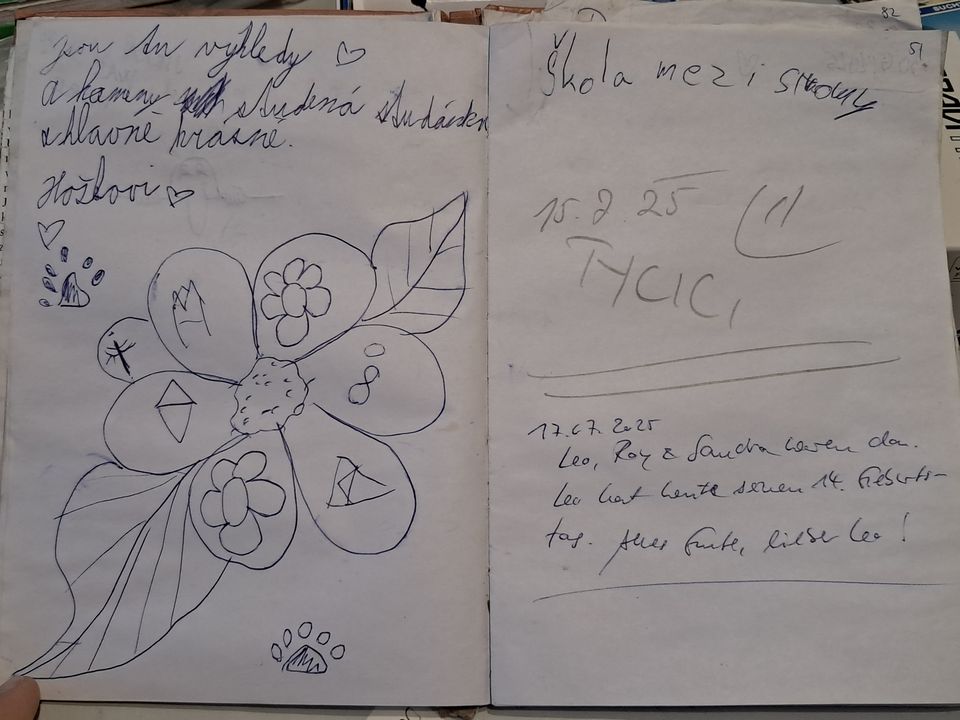 Jsou tu výhledy
a kameny studená studánka
hlavně krásné.
Hoškovi
51
Škola mezi stromy
TYCICI
17.07.2025
Leo, Roy & Sandra waren da.
Leo hat heute seinen 14. Geburts-
tag. Alles Gute, lieber Leo!
82